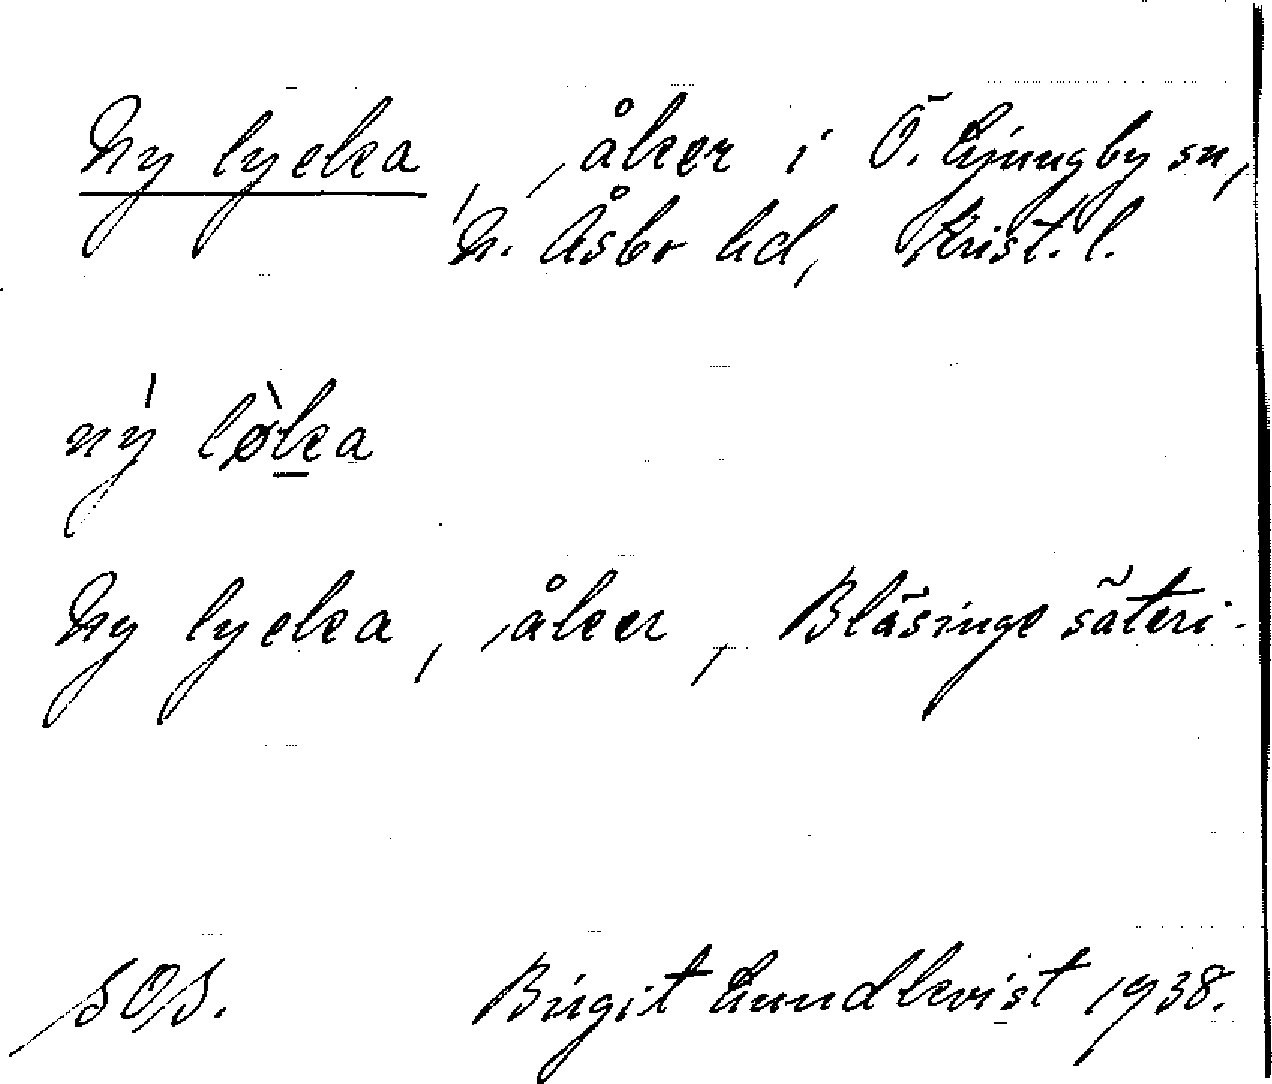 Ny lycka, åker i Ö. Ljungby sn,
N. Åsbo hd, Krist. l.
ný lø̀ka
Ny lycka, åker, Blåsinge säteri.
SOS. Birgit Lundkvist 1938.